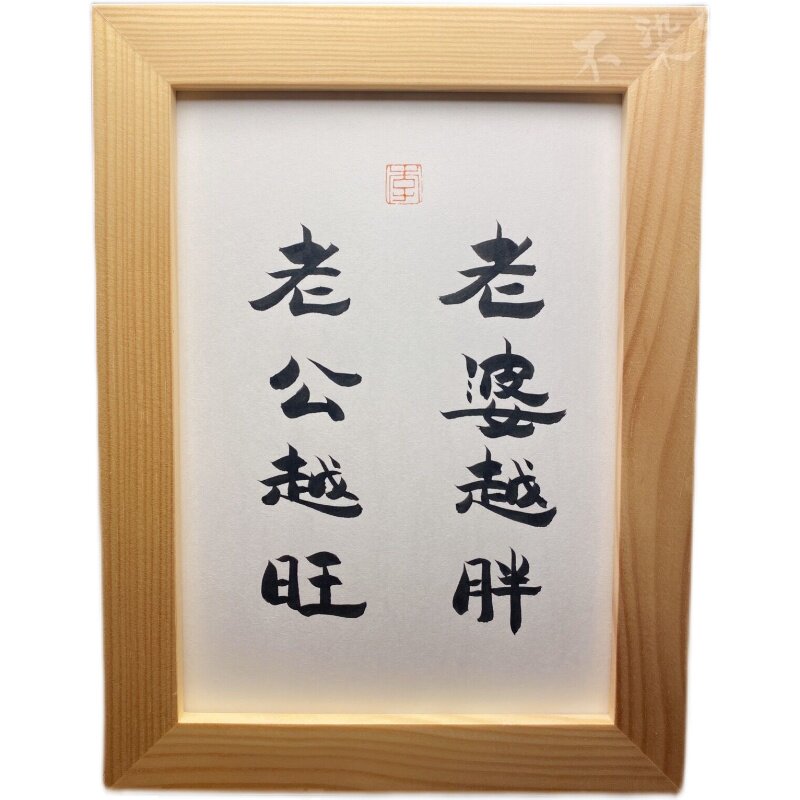 老婆越胖
老公越旺
不染